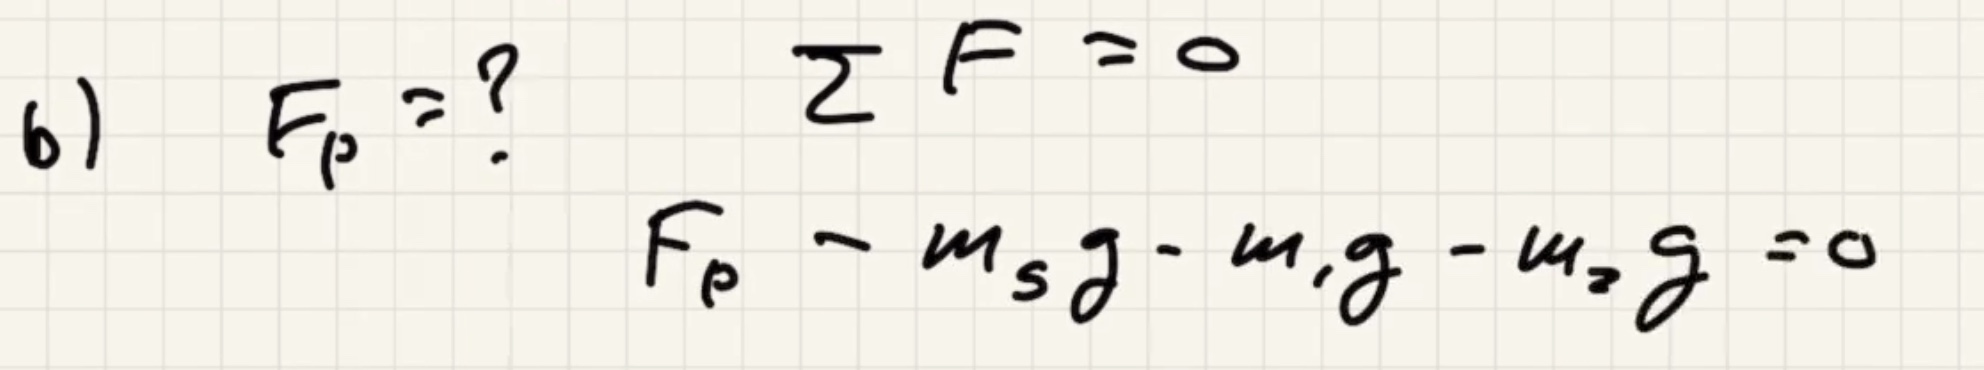 b) F_p = ? Σ F = 0
F_p - m_s g - m_1 g - m_2 g = 0